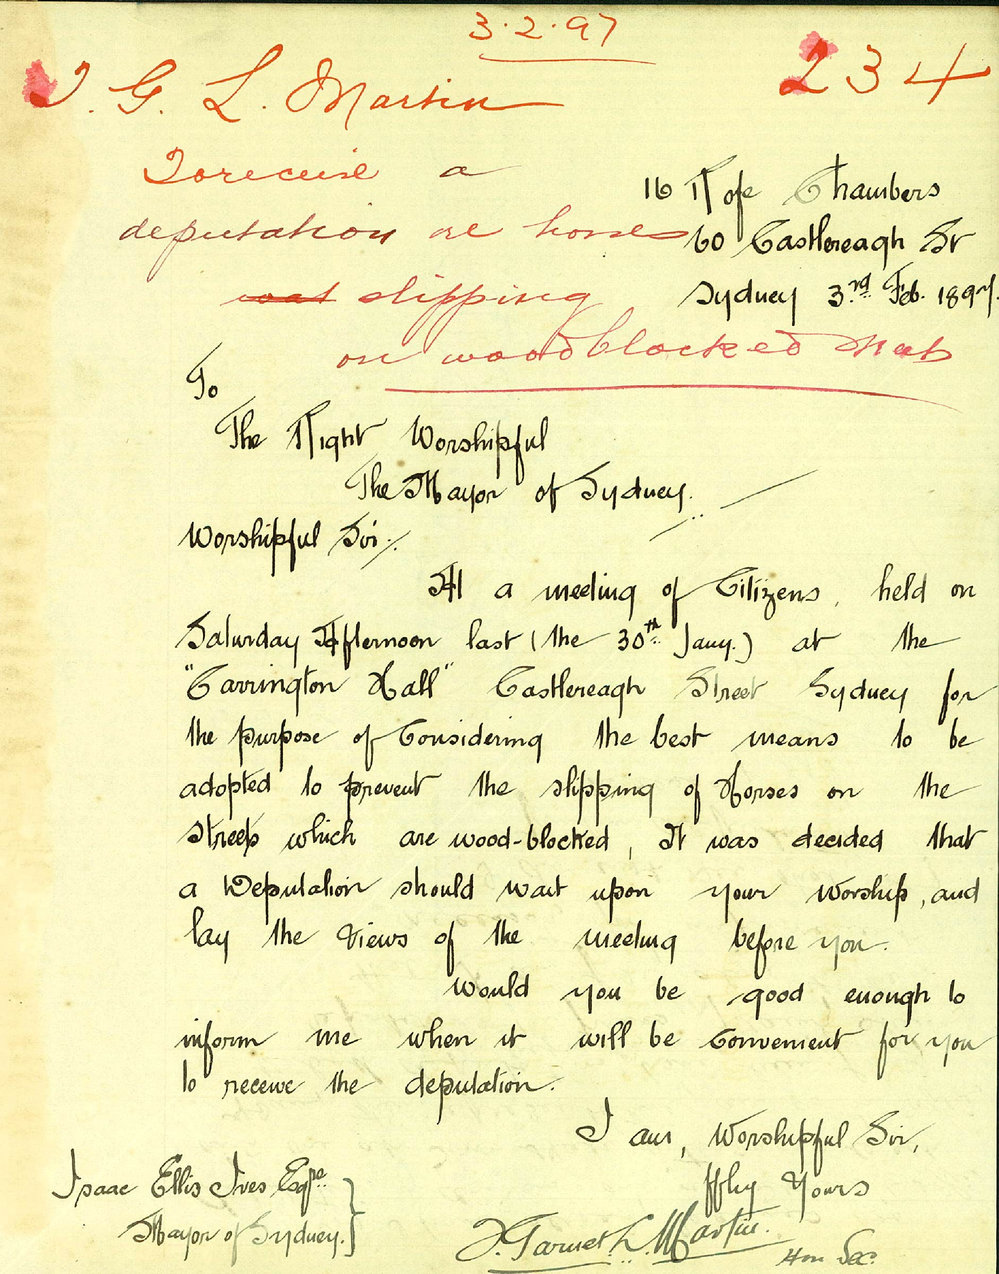 3.2.97
J. G. L. Martin
234
To receive a
deputation re horses
wat slipping
on woodblocked Streets
16 Rofe Chambers
60 Castlereagh St
Sydney 3rd Feb. 1897.
To
The Right Worshipful
The Mayor of Sydney.
Worshipful Sir:
At a meeting of Citizens, held on
Saturday Afternoon last (the 30th Jany.) at the
"Carrington Hall" Castlereagh Street Sydney for
the purpose of Considering the best means to be
adopted to prevent the slipping of Horses on the
streets which are wood-blocked, It was decided that
a Deputation should wait upon your Worship, and
lay the views of the meeting before you.
Would you be good enough to
inform me when it will be Convenient for you
to receive the deputation.
I am, Worshipful Sir,
ffly Yours
J. Garnet L. Martin.
Hon Sec.
Isaac Ellis Ives Esqre
Mayor of Sydney.